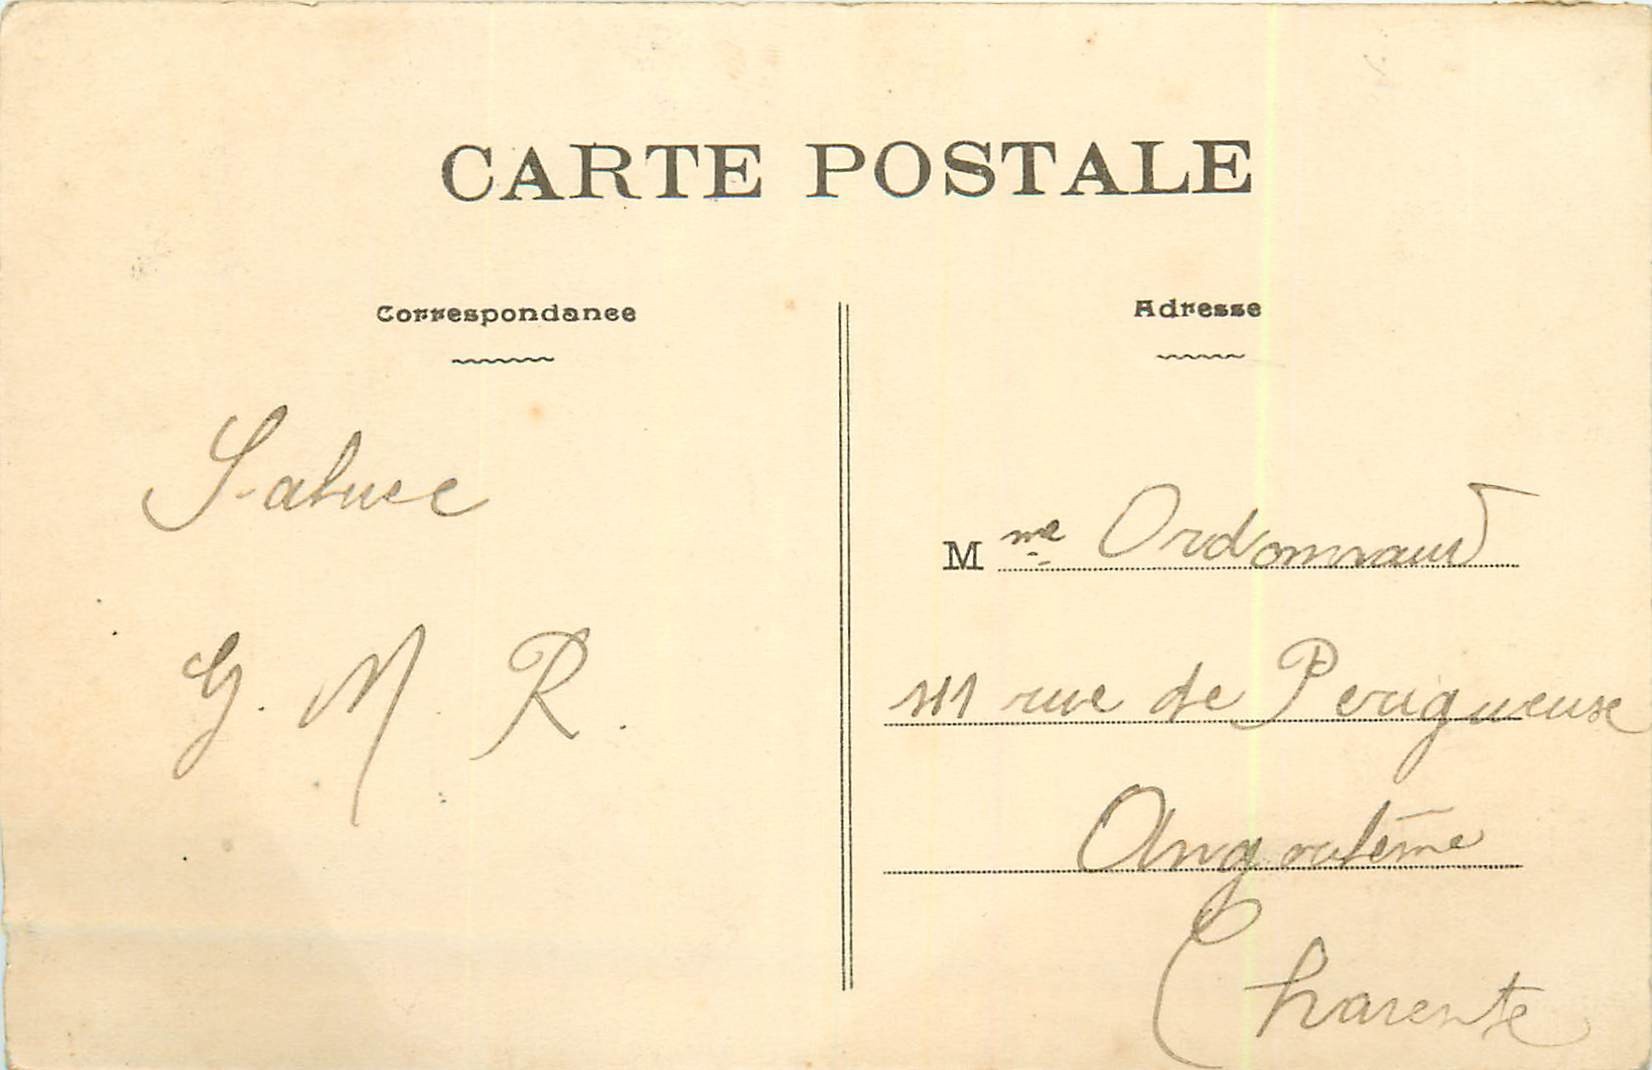 CARTE POSTALE
Correspondance
Adresse
G. M. R.
Mme Ordonnaud
111 rue de Perigueuse
Angoulême
Charente